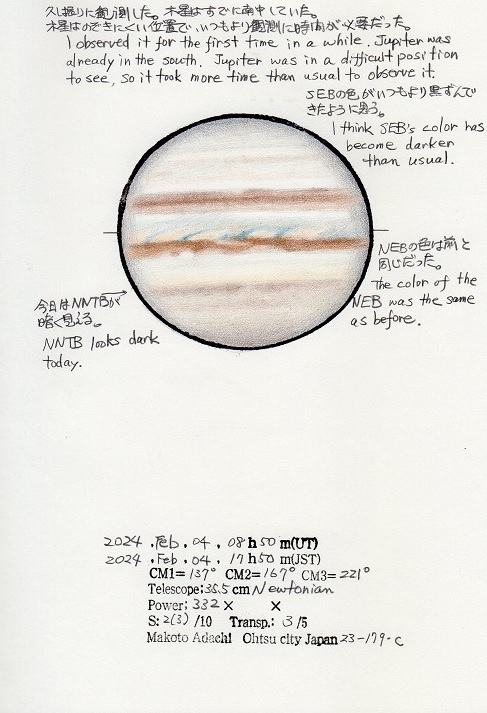 久し振りに観測した。木星はすでに南中していた。
木星はのぞきにくい位置で、いつもより観測に時間が必要だった。
I observed it for the first time in a while. Jupiter was
already in the south. Jupiter was in a difficult position
to see, so it took more time than usual to observe it.
SEBの色がいつもより黒ずんで
きたように思う。
I think SEB's color has
become darker
than usual.
NEBの色は前と
同じだった。
The color of the
NEB was the same
as before.
今日はNNTBが
暗く見える。
NNTB looks dark
today.
2024 . Feb . 04 . 08 h 50 m(UT)
2024 . Feb . 04 . 17 h 50 m(JST)
CM1= 137° CM2= 167° CM3= 221°
Telescope: 35.5 cm Newtonian
Power; 332 × ×
S: 2(3) /10 Transp.: 3 /5
Makoto Adachi Ohtsu city Japan 23-179-c